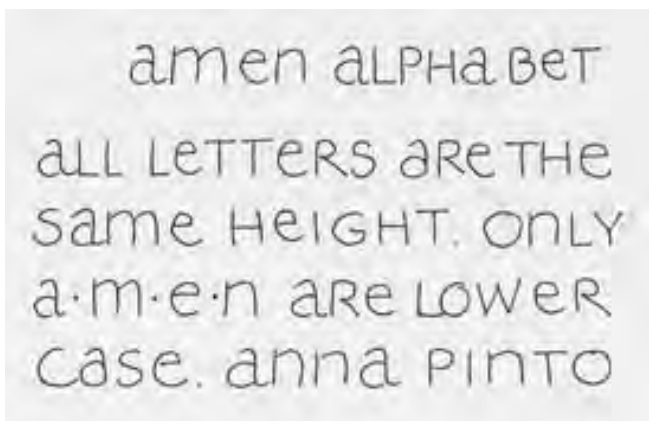 amen aLPHaBeT
aLL LeTTeRS aRe THe
Same HeIGHT. OnLY
a·m·e·n aRe LOWeR
CaSe. anna PInTO